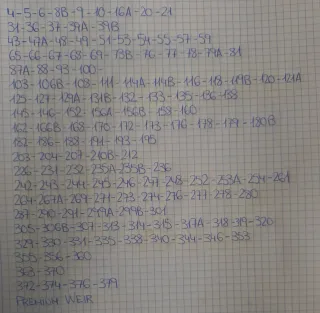 4-5-6-8B-9-10-16A-20-21
31-36-37-39A-39B
43-47A-48-49-51-53-54-55-57-59
65-66-67-68-69-73B-76-77-78-79A-81
87A-88-93-100-
103-106B-108-111-114A-114B-116-118-119B-120-121A
125-127-129A-131B-132-133-135-136-138
145-146-152-156A-156B-158-160
162-166B-168-170-172-173-176-178-179-180B
182-186-188-191-193-195
203-204-207-210B-212
226-231-232-235A-235B-236
242-243-244-245-246-247-248-252-253A-254-261
264-267A-269-271-273-274-276-277-278-280
287-290-291-299A-299B-301
305-306B-307-313-314-315-317A-318-319-320
329-330-331-335-338-340-344-346-353
355-356-360
363-370
372-374-376-379
PREMIUM WEIR